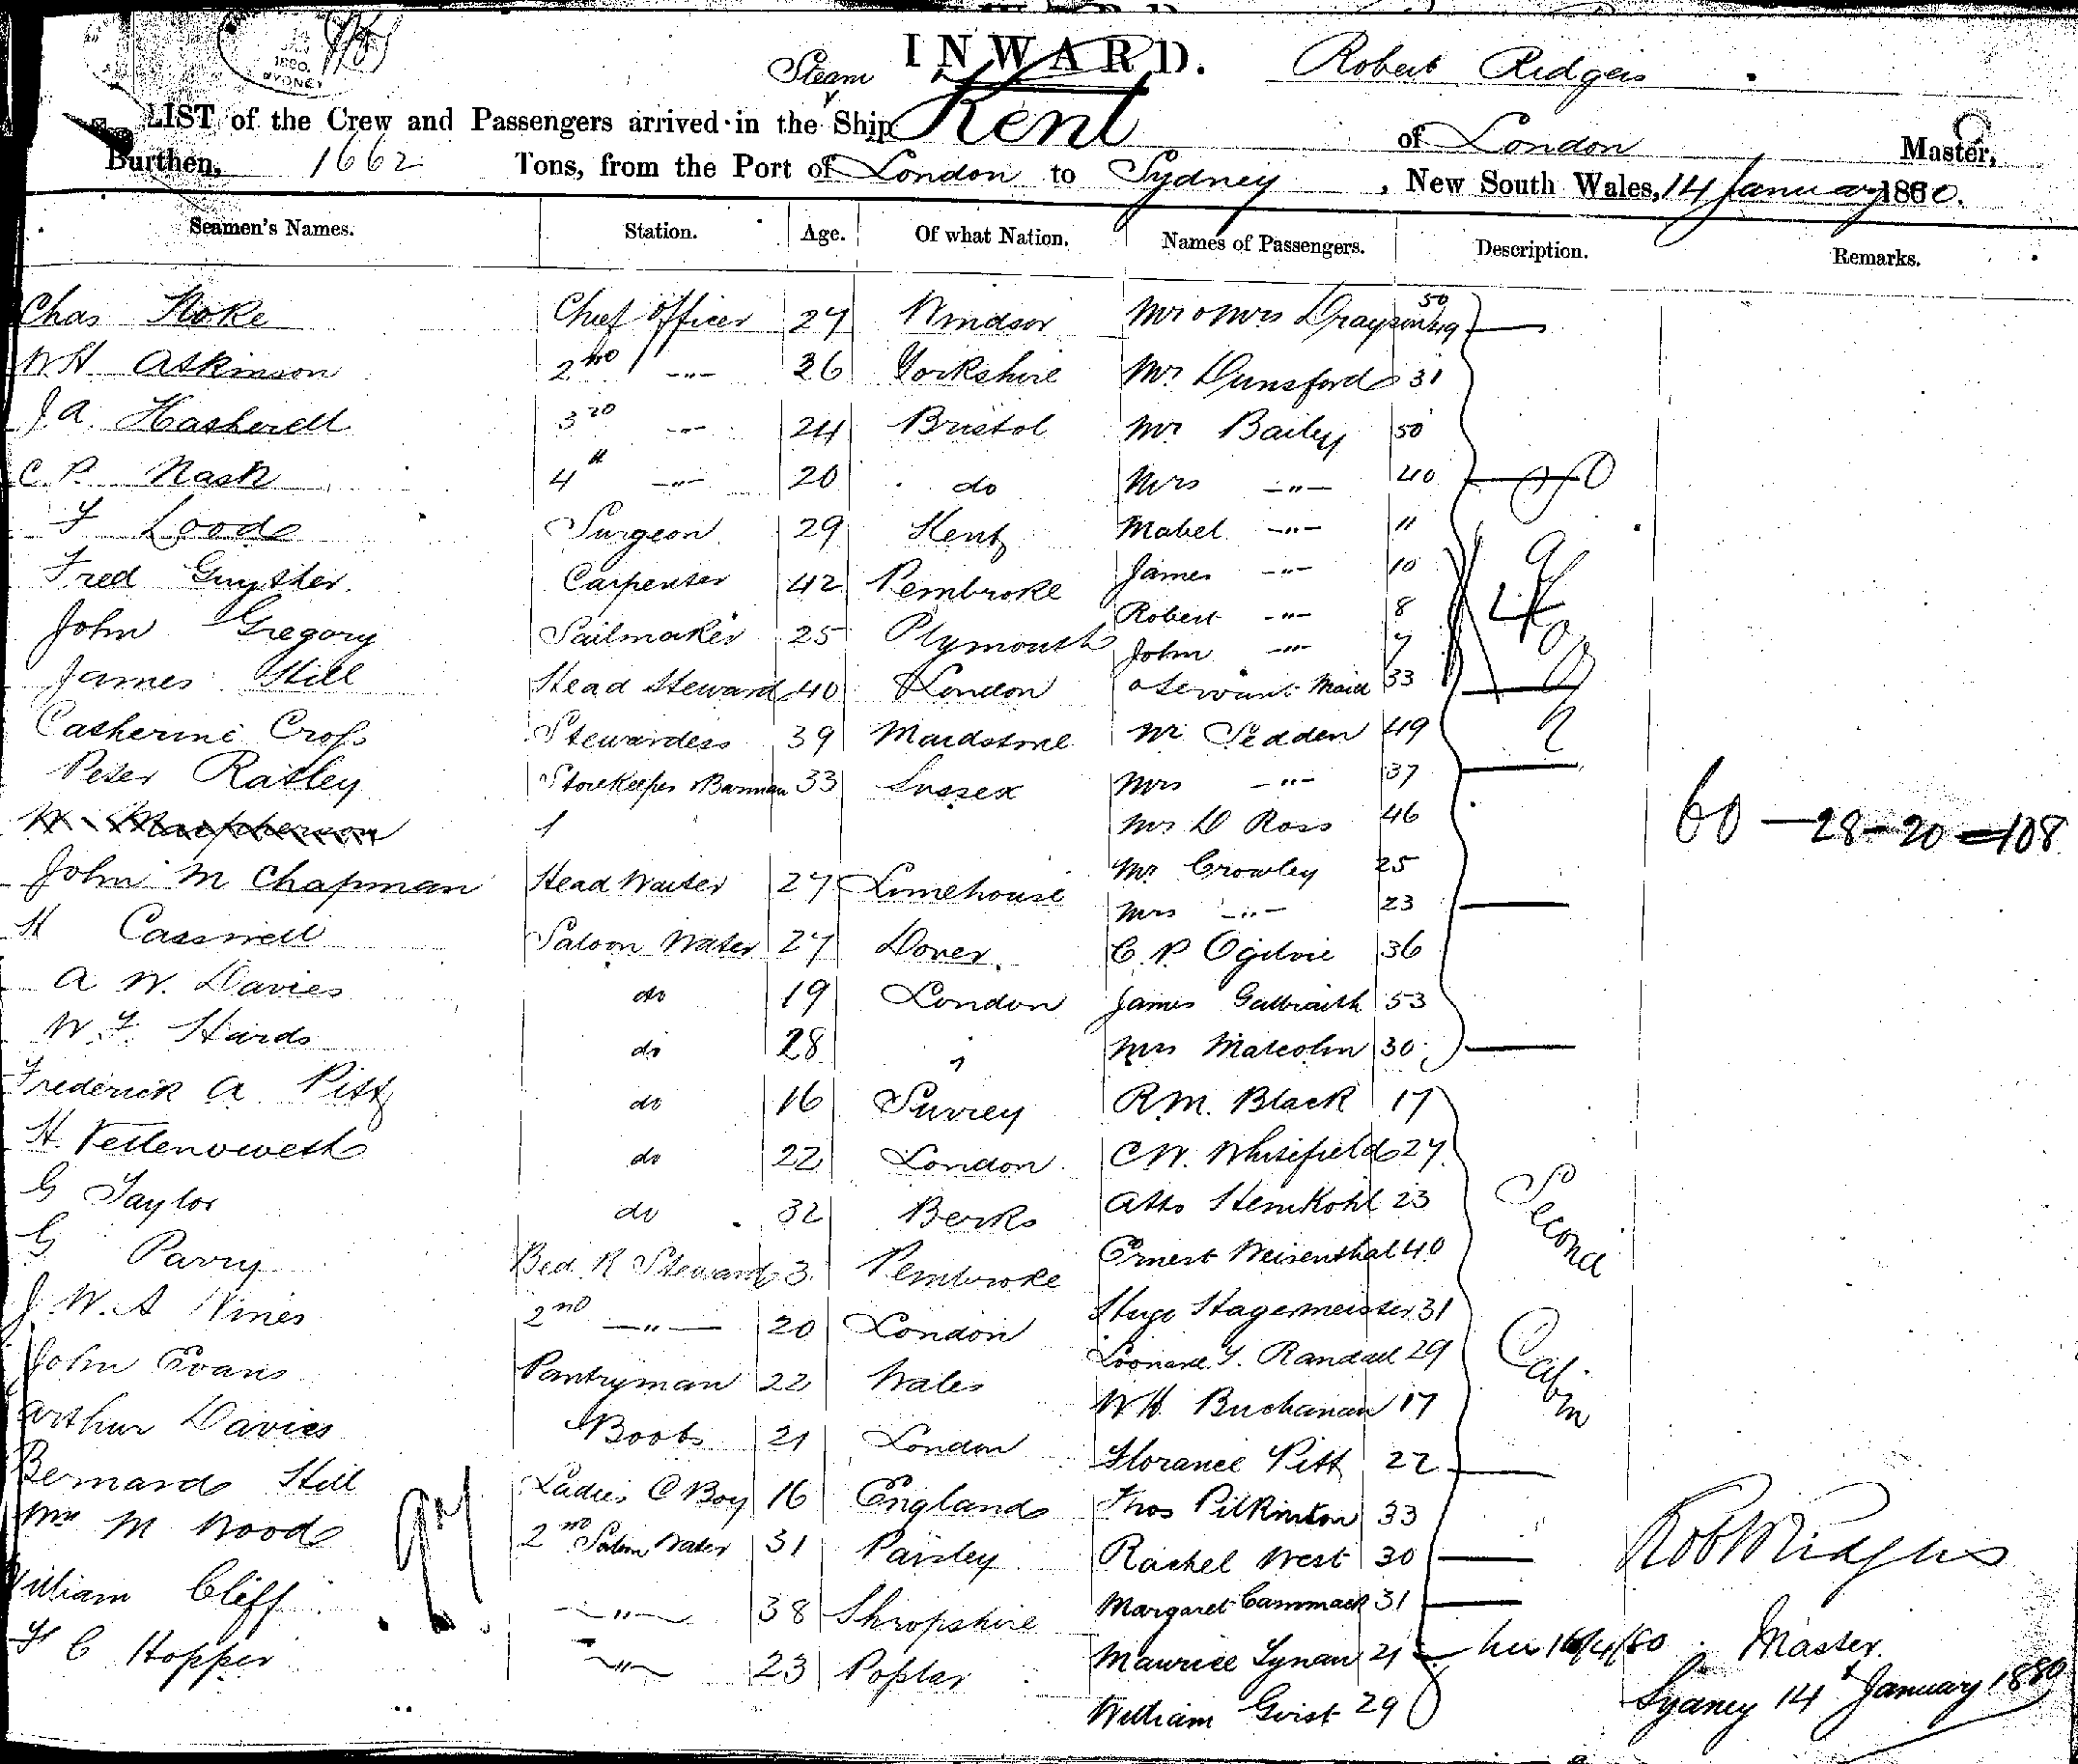 1880.
SYDNEY
INWARD.
Robert Ridgers
Steam
LIST of the Crew and Passengers arrived in the Ship Kent of London Master,
Burthen, 1662 Tons, from the Port of London to Sydney, New South Wales, 14 January 1880.
Seamen's Names. Station. Age. Of what Nation. Names of Passengers. Description. Remarks.
Chas Stoke Chief Officer 27 Windsor Mr & Mrs Drayson 50 49
W H Atkinson 2nd -"- 26 Yorkshire Mr. Dunsford 31
J. A. Hashwell 3rd -"- 24 Bristol Mr Bailey 50
C. P. Nash 4th -"- 20 do Mrs -"- 40
F Lood Surgeon 29 Kent Mabel -"- 11
Fred Guyther Carpenter 42 Pembroke James -"- 10
Robert -"- 8
John Gregory Sailmaker 25 Plymouth John -"- 7
James Hill Head Steward 40 London & Servant Maid 33
Catherine Cross Stewardess 39 Maidstone Mr Sedden 49
Peter Ratley Storekeeper & Barman 33 Sussex Mrs -"- 37
W. Macpherson Mr D Ross 46
60 - 28 - 20 = 108
John M Chapman Head Waiter 27 Limehouse Mr Crowley 25
Mrs -"- 23
H Casswell Saloon Waiter 27 Dover C. P. Ogilvie 36
A W. Davies do 19 London James Galbraith 53
W. F. Hards do 28 " Mrs Malcolm 30
Frederick A Pitt do 16 Surrey R M. Black 17
H. do 22 London C W. Whitefield 27
G Taylor do 32 Berks Atto Stemkohl 23
Second
G Parry Bed R Steward 3 Pembroke Ernest Weisenthal 40
J. W. A Vines 2nd -"- 20 London Hugo Hagermeister 31
John Evans Pantryman 22 Wales Randall 29
Cabin
W H. Buchanan 17
Arthur Davies Boots 21 London Florance Pitt 22
Bernard Hill Ladies C Boy 16 England Thos Pilkinton 33
Wm M Wood 2nd Saloon Waiter 31 Paisley Rachel West 30
William Cliff -"- 38 Shropshire Margaret Cammack 31
F C Hopper -"- 23 Poplar Maurice Lynan 21
William Grist 29
Rob Ridgers
Master.
Sydney 14 January 1880